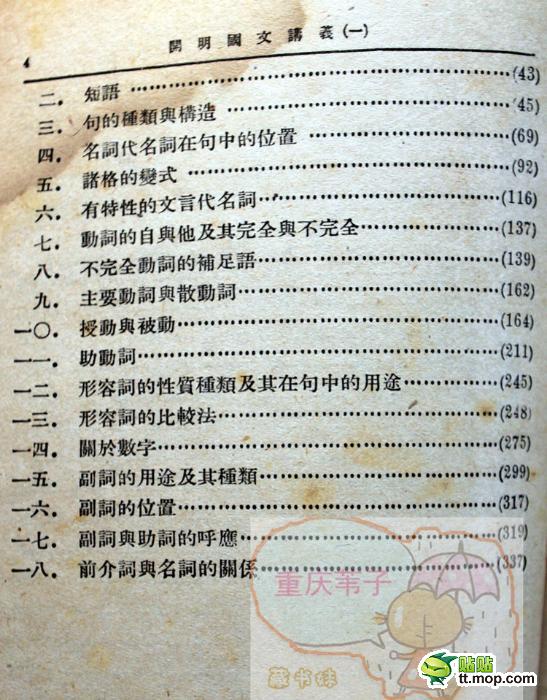 4
開明國文講義(一)
二．短語……(43)
三．句的種類與構造……(45)
四．名詞代名詞在句中的位置……(69)
五．諸格的變式……(92)
六．有特性的文言代名詞……(116)
七．動詞的自與他及其完全與不完全……(137)
八．不完全動詞的補足語……(139)
九．主要動詞與散動詞……(162)
一〇．授動與被動……(164)
一一．助動詞……(211)
一二．形容詞的性質種類及其在句中的用途……(245)
一三．形容詞的比較法……(248)
一四．關於數字……(275)
一五．副詞的用途及其種類……(299)
一六．副詞的位置……(317)
一七．副詞與助詞的呼應……(319)
一八．前介詞與名詞的關係……(337)
重庆苇子
藏书妹
贴贴
tt.mop.com